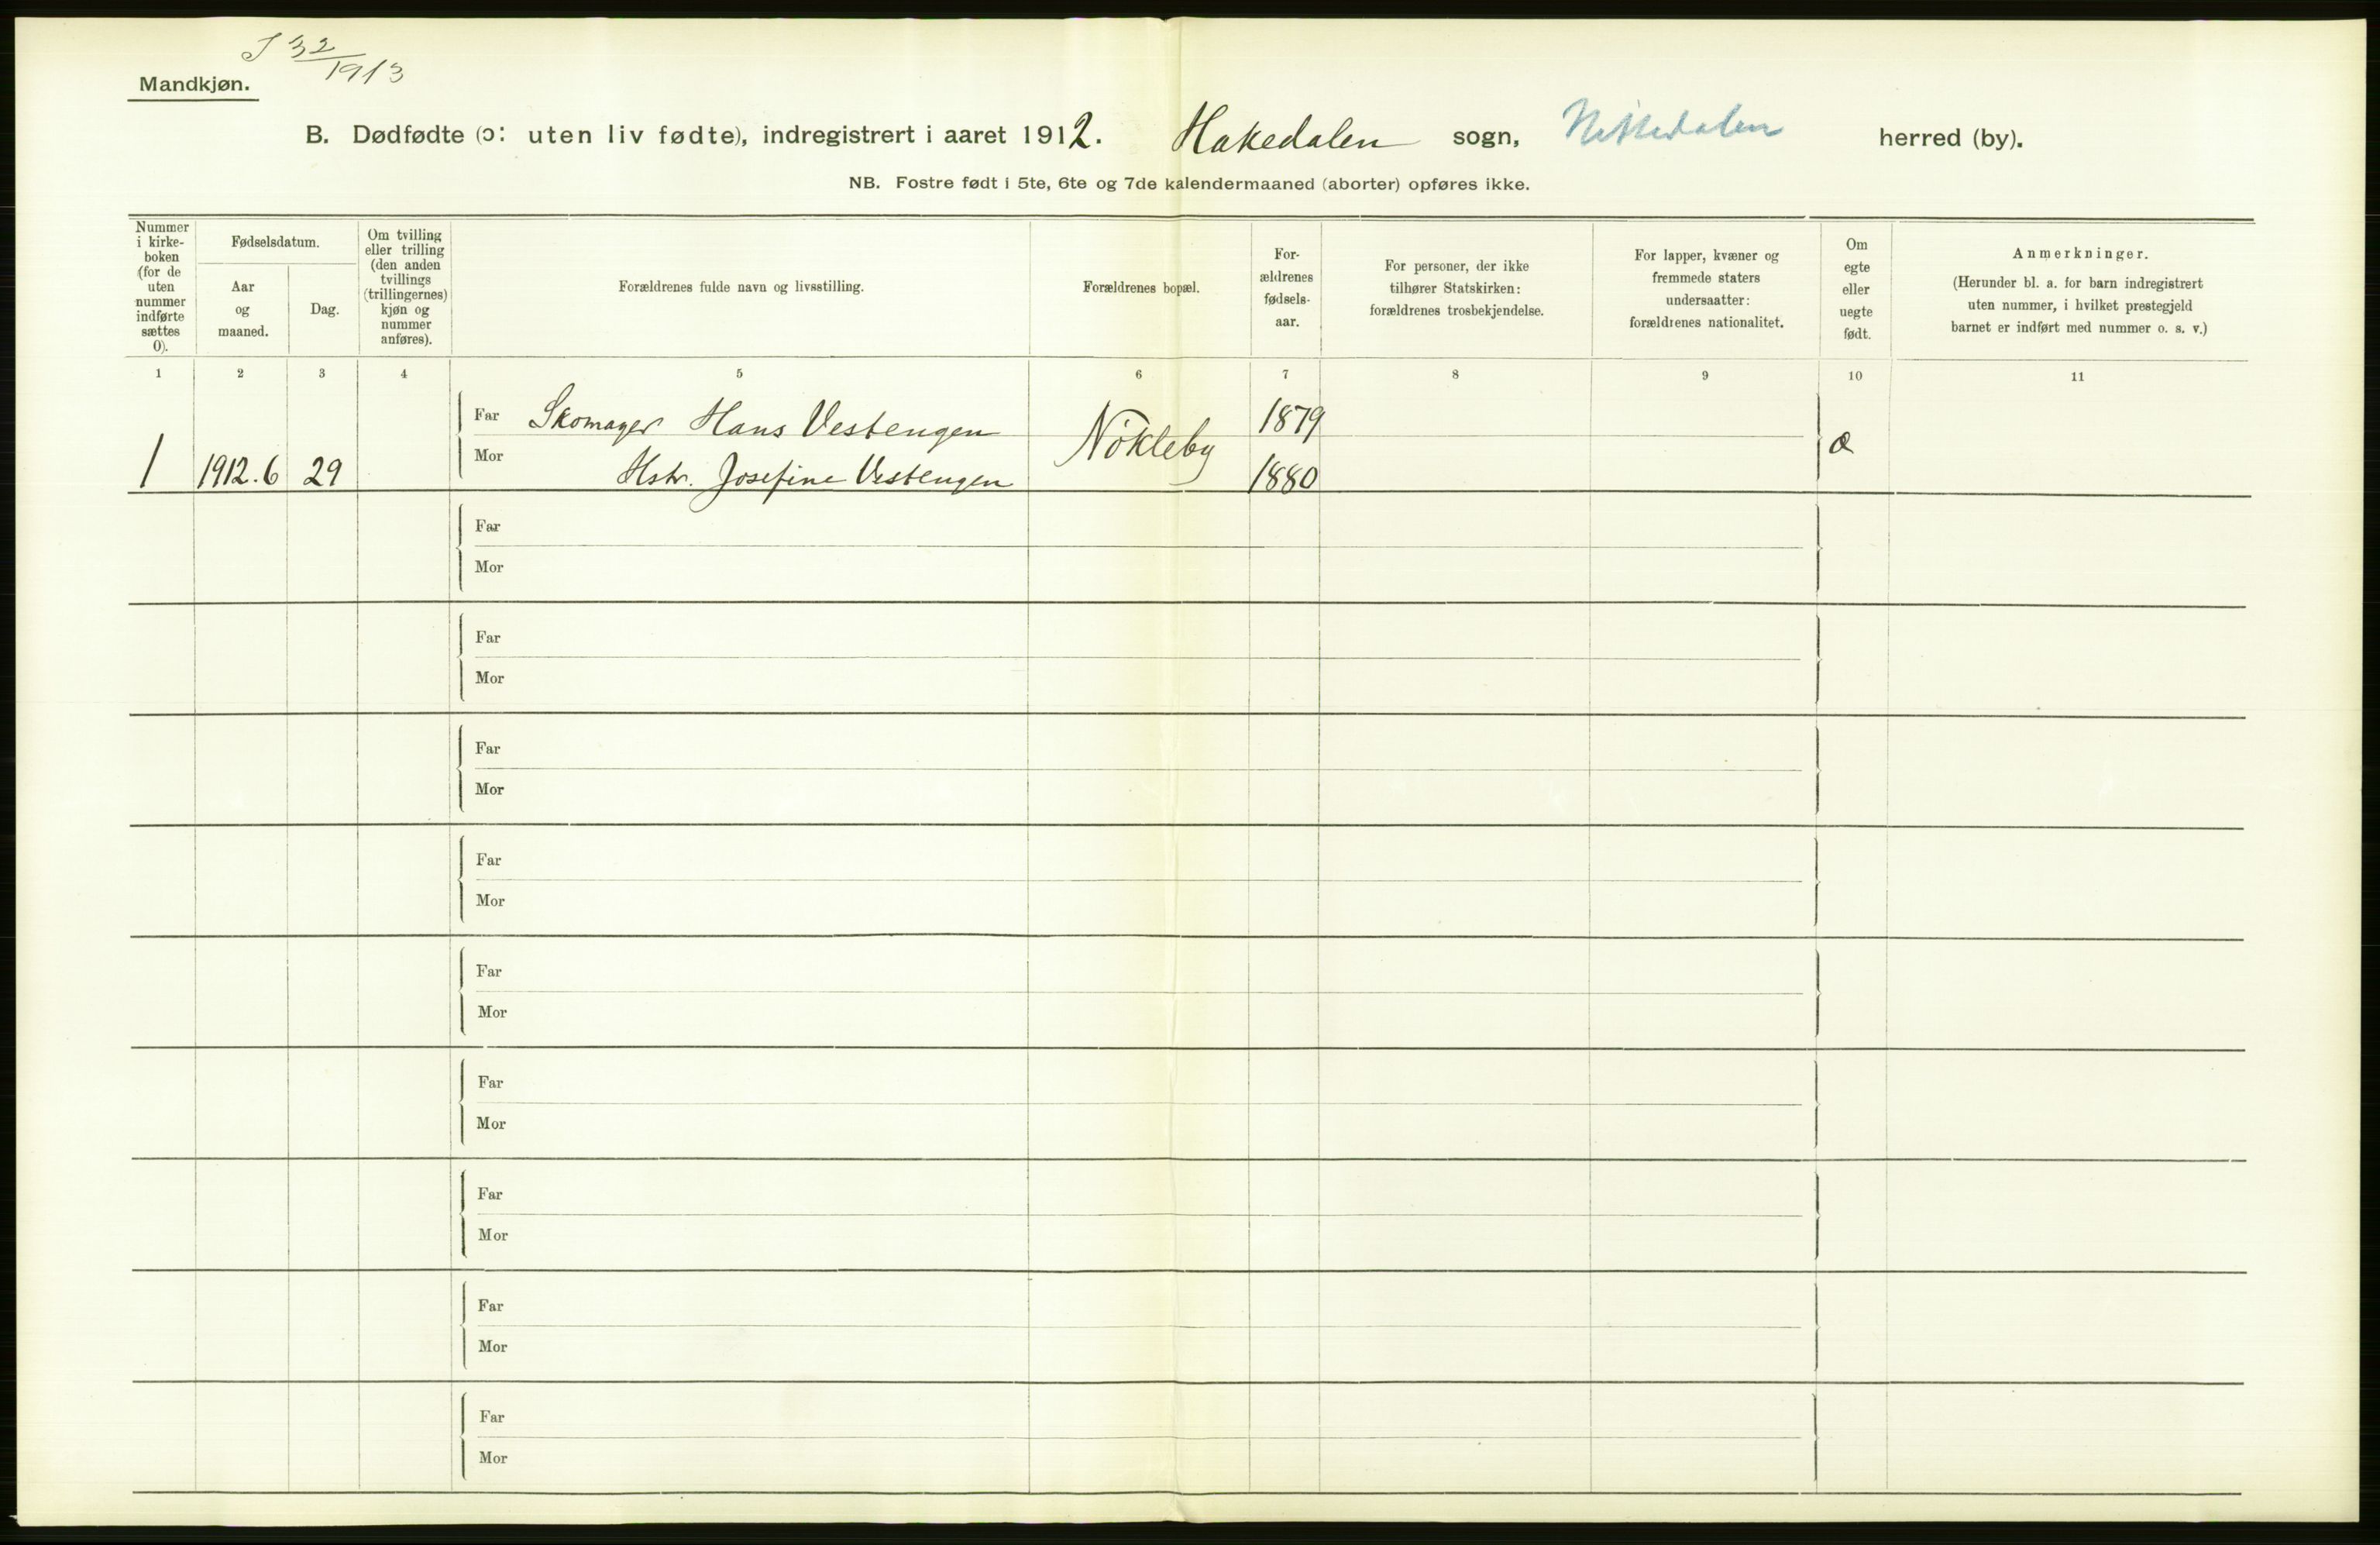 J 32/1913
Mandkjøn.
B. Dødfødte (ɔ: uten liv fødte), indregistrert i aaret 1912. Hakedalen sogn, Nittedalen herred (by).
NB. Fostre født i 5te, 6te og 7de kalendermaaned (aborter) opføres ikke.
Nummer
i kirke-
boken
(for de
uten
nummer
indførte
sættes
0).
Fødselsdatum.
Aar
og
maaned.
Dag.
Om tvilling
eller trilling
(den anden
tvillings
(trillingernes)
kjøn og
nummer
anføres).
Forældrenes fulde navn og livsstilling.
Forældrenes bopæl.
For-
ældrenes
fødsels-
aar.
For personer, der ikke
tilhører Statskirken:
forældrenes trosbekjendelse.
For lapper, kvæner og
fremmede staters
undersaatter:
forældrenes nationalitet.
Om
egte
eller
uegte
født.
Anmerkninger.
(Herunder bl. a. for barn indregistrert
uten nummer, i hvilket prestegjeld
barnet er indført med nummer o. s. v.)
1 2 3 4 5 6 7 8 9 10 11
Far Skomager Hans Vestengen 1879
1 1912.6 29 Mor Hstr. Josefine Vestengen Nökleby 1880 æ
Far
Mor
Far
Mor
Far
Mor
Far
Mor
Far
Mor
Far
Mor
Far
Mor
Far
Mor
Far
Mor